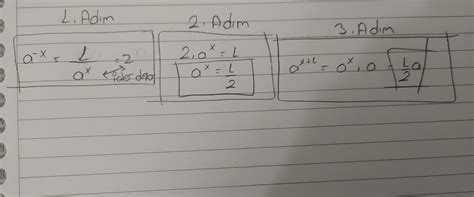 1. Adım
a^-x = 1/a^x = 2
2. Adım
2.a^x = 1
a^x = 1/2
3. Adım
a^x+1 = a^x . a = 1/2 a